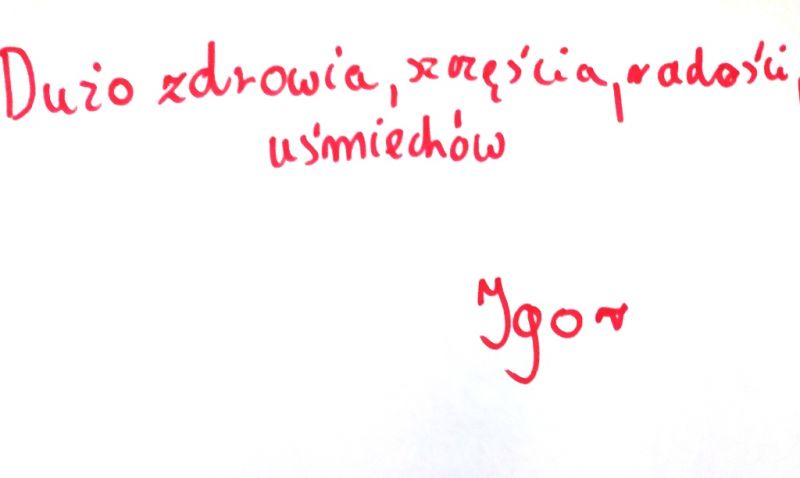 Dużo zdrowia, szczęścia, radości,
uśmiechów
Igor